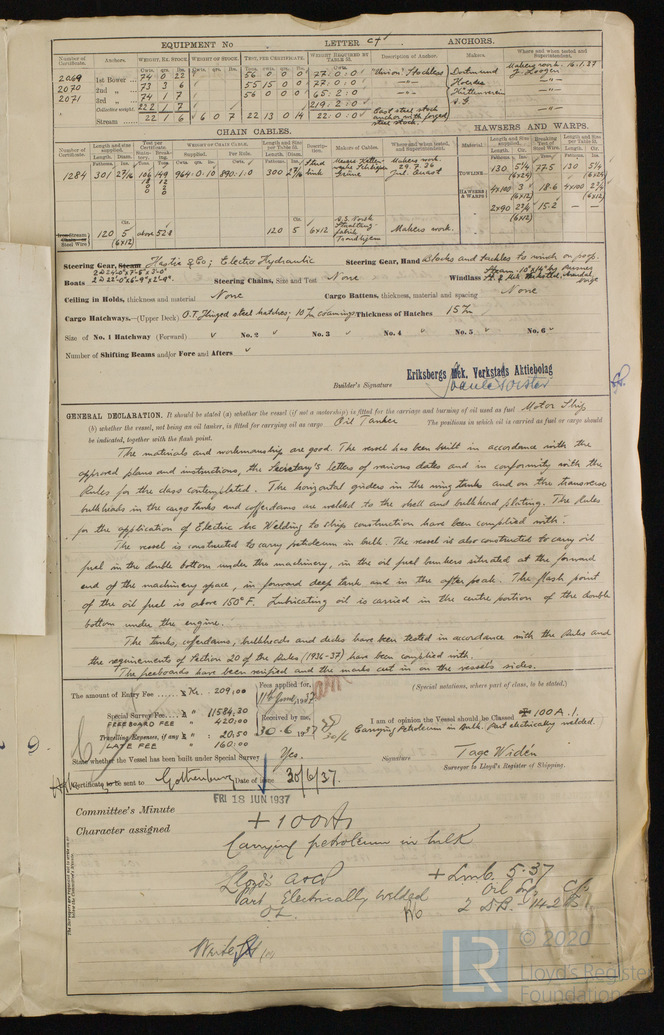 EQUIPMENT No LETTER ct ANCHORS.
Number of Certificate. Anchors. Weight, Ex. Stock Weight of Stock. Test, per Certificate. Weight Required by Table 53. Description of Anchor. Makers. Where and when tested and Superintendent.
2069 1st Bower 74 0 22 56 0 0 0 77 0 0 "Union" Stockless Dortmund Makers work. 16.1.37
2070 2nd 73 3 6 55 15 0 0 77 0 0 Hoerder
2071 3rd 74 1 7 56 0 0 0 65 2 0 Hüttenverein
Collective weight 222 1 7 219 2 0 A.G.
Stream 22 1 6 6 0 7 22 13 0 14 22 0 0 Cast steel stock anchor with forged steel stock.
CHAIN CABLES. HAWSERS AND WARPS.
Number of Certificate. Length and size supplied. Test per Certificate. Weight of Chain Cable. Length and size per Table 53. Description. Makers of Cables. Where and when tested, and Superintendent. Material. Length and Size supplied. Breaking Test of Steel Wire. Length and Size per Table 53.
1284 301 2 3/16 106 149 964.0.10 890.1.0 300 2 3/16 Stud link Grüne Makers work. 29.7.36 TOWLINE 130 5 1/4 (6x24) 77.5 130 5 1/4 (6x24)
HAWSERS & WARPS 4x100 3 (6x12) 18.6 4x100 2 3/4 (6x12)
2x90 2 3/4 (6x12) 15.2
Steel Wire 120 5 (6x12) above 52.8 120 5 6x12 A.S. Norsk Staaltaugfabrik Trondhjem Makers work.
Steering Gear, Steam Hastie & Co; Electro Hydraulic Steering Gear, Hand Blocks and tackles to winch on poop.
Boats 2 à 24'-0" x 7'-5" x 3'-0" 2 à 22'-0" x 6'-9" x 2'-9" Steering Chains, Size and Test None Windlass Steam 10"x14" by
Ceiling in Holds, thickness and material None Cargo Battens, thickness, material and spacing None
Cargo Hatchways.—(Upper Deck) O.T. Hinged steel hatches; 10 In coamings Thickness of Hatches 15 In
Size of No. 1 Hatchway (Forward) No. 2 No. 3 No. 4 No. 5 No. 6
Number of Shifting Beams and/or Fore and Afters
Eriksbergs Mek. Verkstads Aktiebolag
Builder's Signature
GENERAL DECLARATION. It should be stated (a) whether the vessel (if not a motorship) is fitted for the carriage and burning of oil used as fuel Motor Ship
(b) whether the vessel, not being an oil tanker, is fitted for carrying oil as cargo Oil Tanker The positions in which oil is carried as fuel or cargo should
be indicated, together with the flash point.
The materials and workmanship are good. The vessel has been built in accordance with the
approved plans and instructions, the Secretary's letters of various dates and in conformity with the
Rules for the class contemplated. The horizontal girders in the wing tanks and on the transverse
bulkheads in the cargo tanks and cofferdams are welded to the shell and bulkhead plating. The Rules
for the application of Electric Arc Welding to Ships construction have been complied with.
The vessel is constructed to carry petroleum in bulk. The vessel is also constructed to carry oil
fuel in the double bottom under the machinery, in the oil fuel bunkers situated at the forward
end of the machinery space, in forward deep tank and in the after peak. The flash point
of the oil fuel is above 150° F. Lubricating oil is carried in the centre portion of the double
bottom under the engine.
The tanks, cofferdams, bulkheads and decks have been tested in accordance with the Rules and
the requirements of Section 20 of the Rules (1936-37) have been complied with.
The freeboards have been verified and the marks cut in on the vessel's sides.
The amount of Entry Fee Kr. 209,00 Fees applied for, 11th June, 1937 (Special notations, where part of class, to be stated.)
Special Survey Fee 11584,30 Received by me,
FREEBOARD FEE 420,00 30.6.1937 30/6
Travelling Expenses, if any 20,50
LATE FEE 160,00
I am of opinion the Vessel should be Classed 100 A.1.
Carrying Petroleum in Bulk. Part electrically welded.
State whether the Vessel has been built under Special Survey Yes. Signature Tage Widén
Surveyor to Lloyd's Register of Shipping.
Certificate to be sent to Gothenburg Date of issue 30/6/37.
FRI 18 JUN 1937
Committee's Minute
Character assigned + 100A1
Carrying petroleum in bulk
Lloyd's A&CP + LMC 5.37
Part Electrically welded
9.
© 2020
LR
Lloyd's Register
Foundation